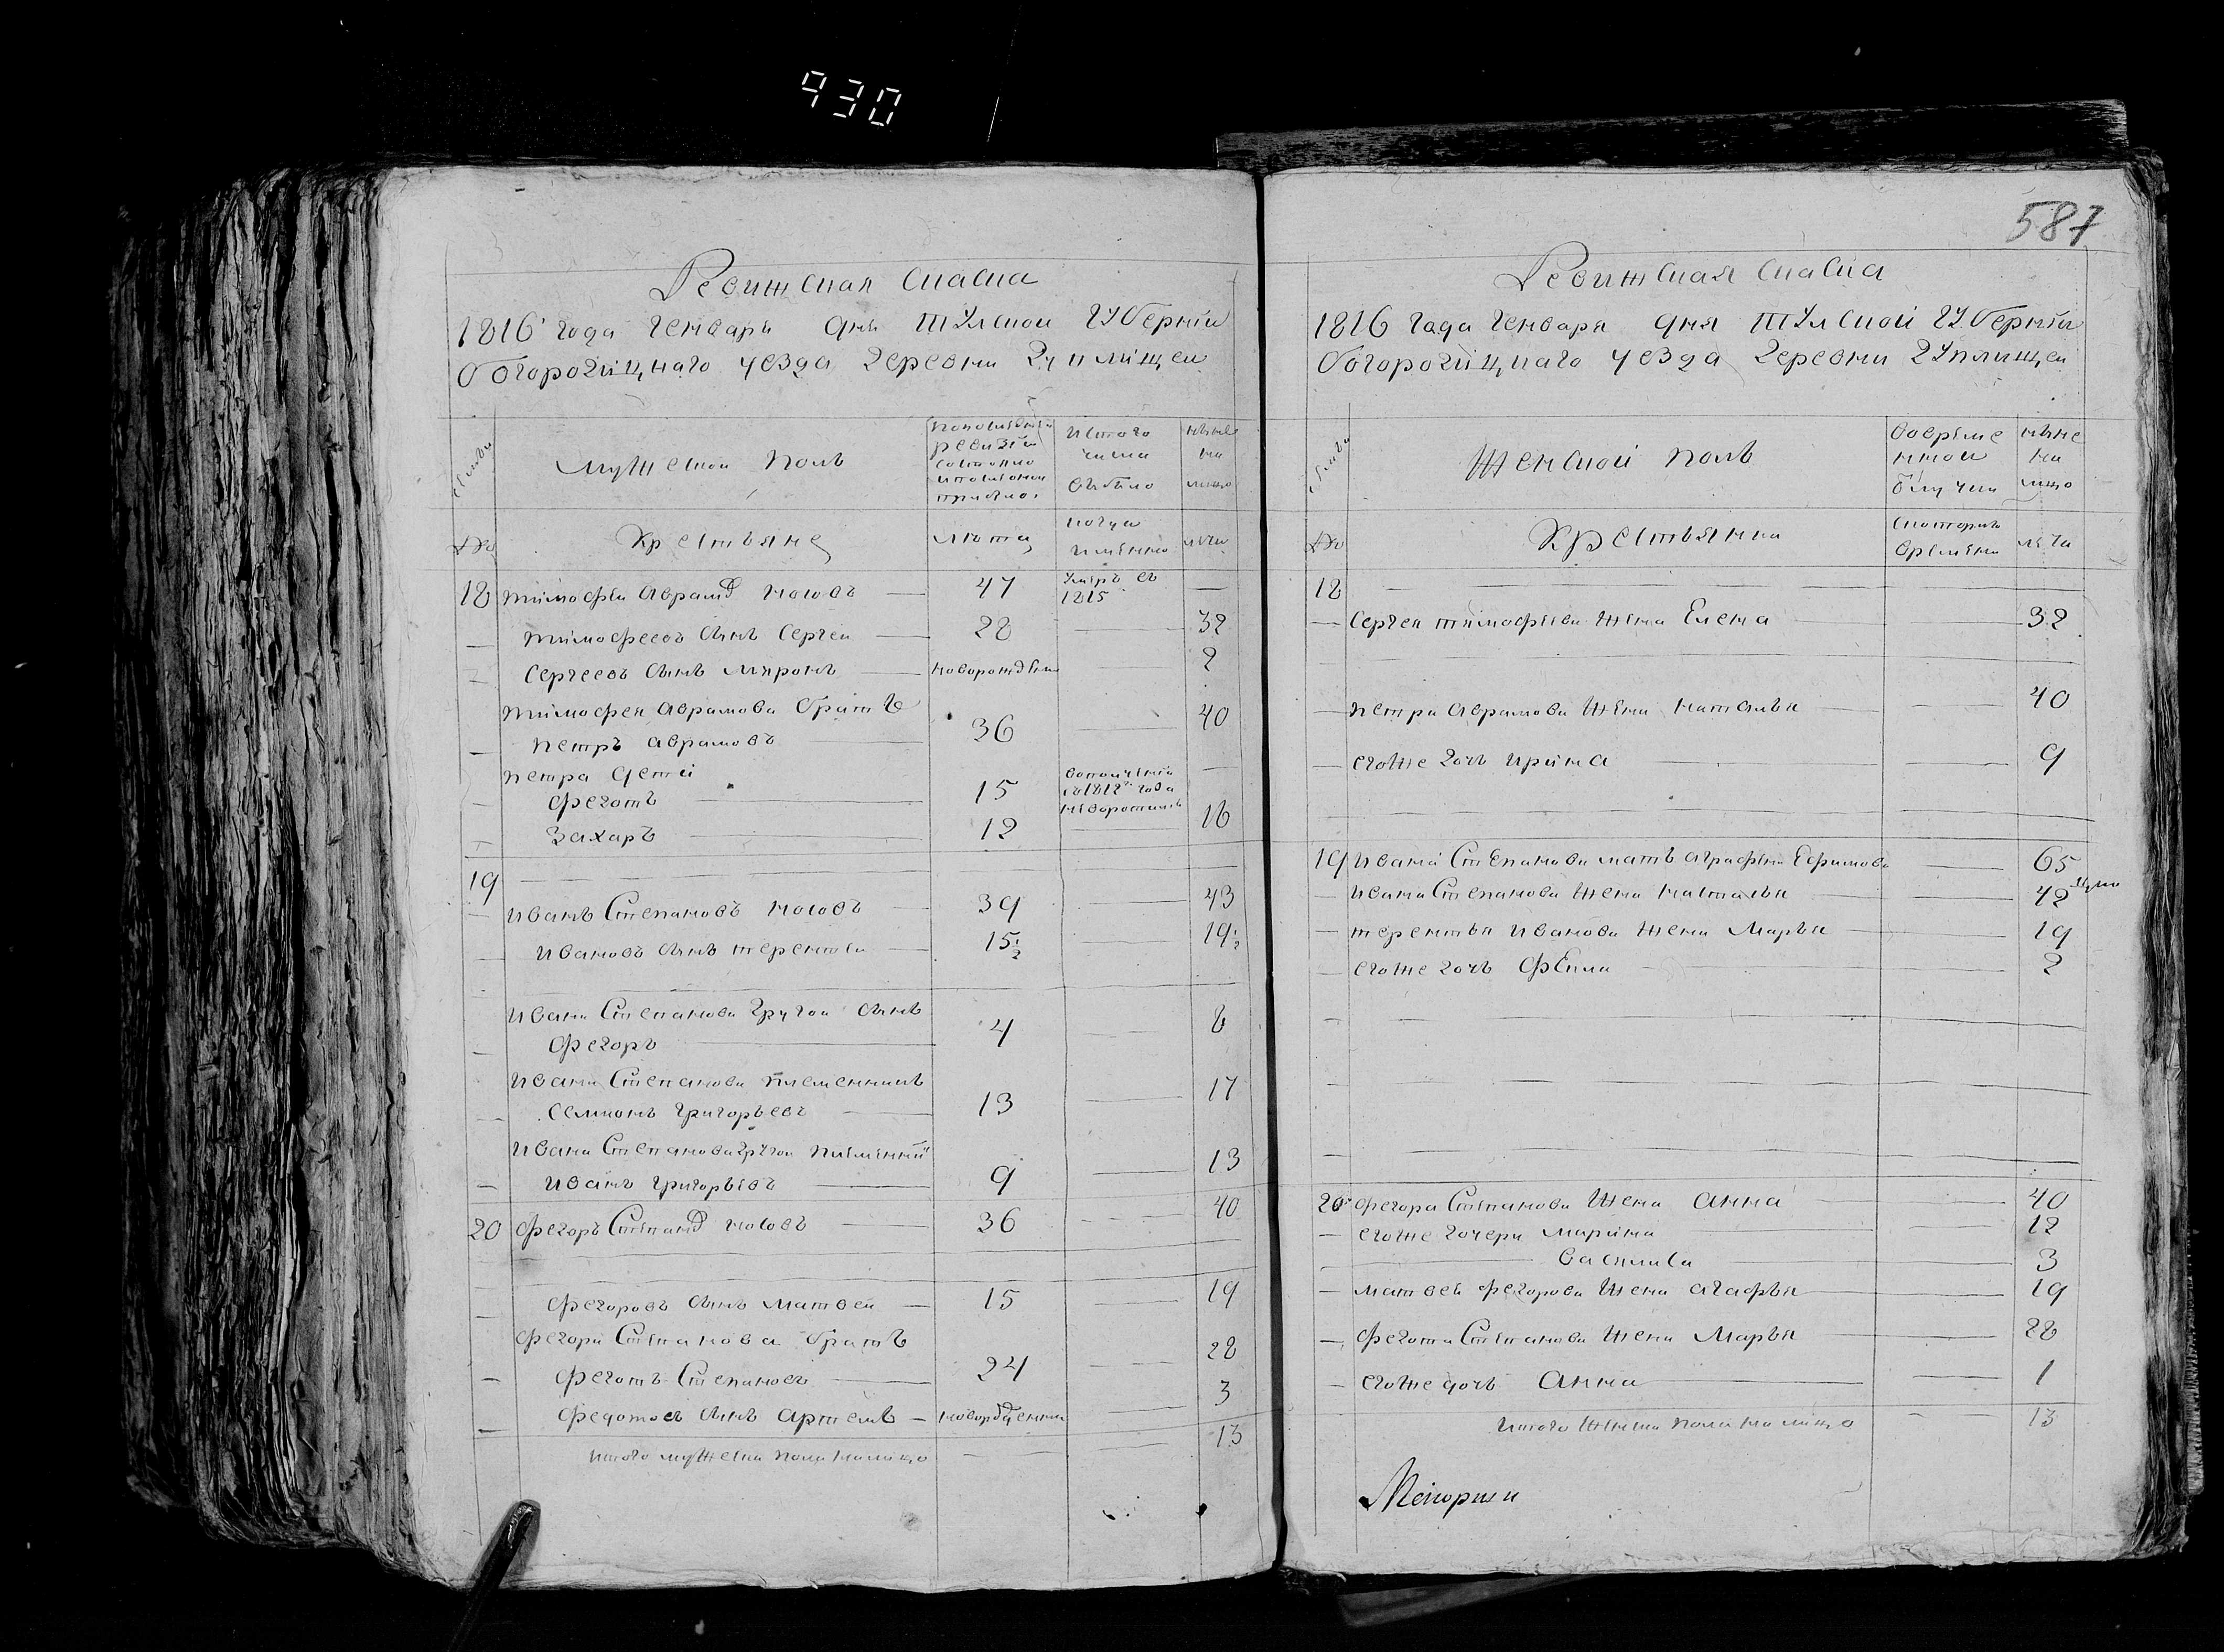 930
Ревижская скаска
1816 года генваря дня тулской губернии
богородицкаго уезда деревни гуплищеи
семьи
мужескои полъ
по последнеи
ревизии
состояло
и после онои
прибыло
исъ того
числа
выбыло
ныне
на
лицо
№
крестьяне
лета
когда
имянно
лета
18 тимофеи аврамовъ носовъ 47 умръ въ
1815 —
тимофеевъ сынъ сергеи 28 32
сергеевъ сынъ миронъ новорожденъ 2
тимофея аврамова братъ
петръ аврамовъ 36 40
петра дети
федотъ 15
въ 1812 года
захаръ 12 16
19
иванъ Степановъ носовъ 39 43
ивановъ сынъ терентеи 15½ 19½
ивана Степанова другои сынъ
федоръ 4 8
ивана Степанова племенникъ
семионъ григорьевъ 13 17
ивана Степанова другои племянникъ
иванъ григорьевъ 9 13
20 федоръ Степановъ носовъ 36 40
федоровъ сынъ матвеи 15 19
федора Степанова братъ
федотъ Степановъ 24 28
федотовъ сынъ артемъ новорожденны 3
итого мужеска пола налицо 13
587
Ревижская скаска
1816 года генваря дня тулской губернии
богородицкаго уезда деревни гуплищеи
семьи
женской полъ
во време
нной
отлучки
ныне
на
лицо
№
крестьянка
с которого
времяни
лета
18
сергея тимофеева жена Елена 32
петра аврамова жена наталья 40
егоже дочь ирина 9
19 ивана Степанова мать аграфена Ефимова 65
ивана Степанова жена наталья 42
терентья иванова жена Марья 19
егоже дочь фекла 2
20 федора Степанова жена анна 40
егоже дочери марина 12
василиса 3
матвея федорова жена агафья 19
федота Степанова жена Марья 28
егоже дочь анна 1
итого женска пола налицо 13